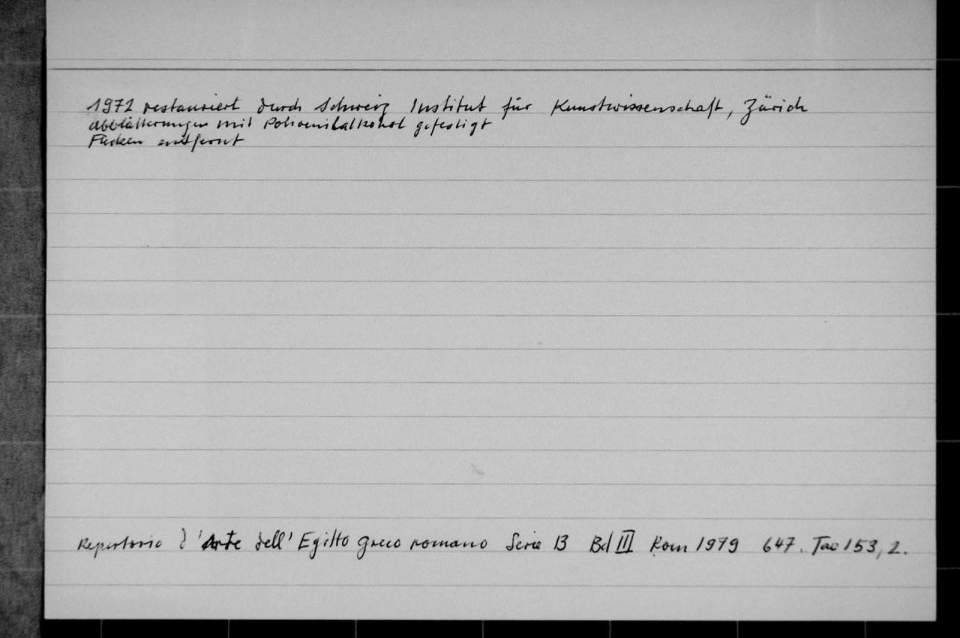 1972 restauriert durch Schweiz Institut für Kunstwissenschaft, Zürich
Abblätterungen mit Polivenilalkohol gefestigt
Flecken entfernt
Repertorio d'Arte dell'Egitto greco romano Serie B Bd III Rom 1979 647. Tav 153, 2.